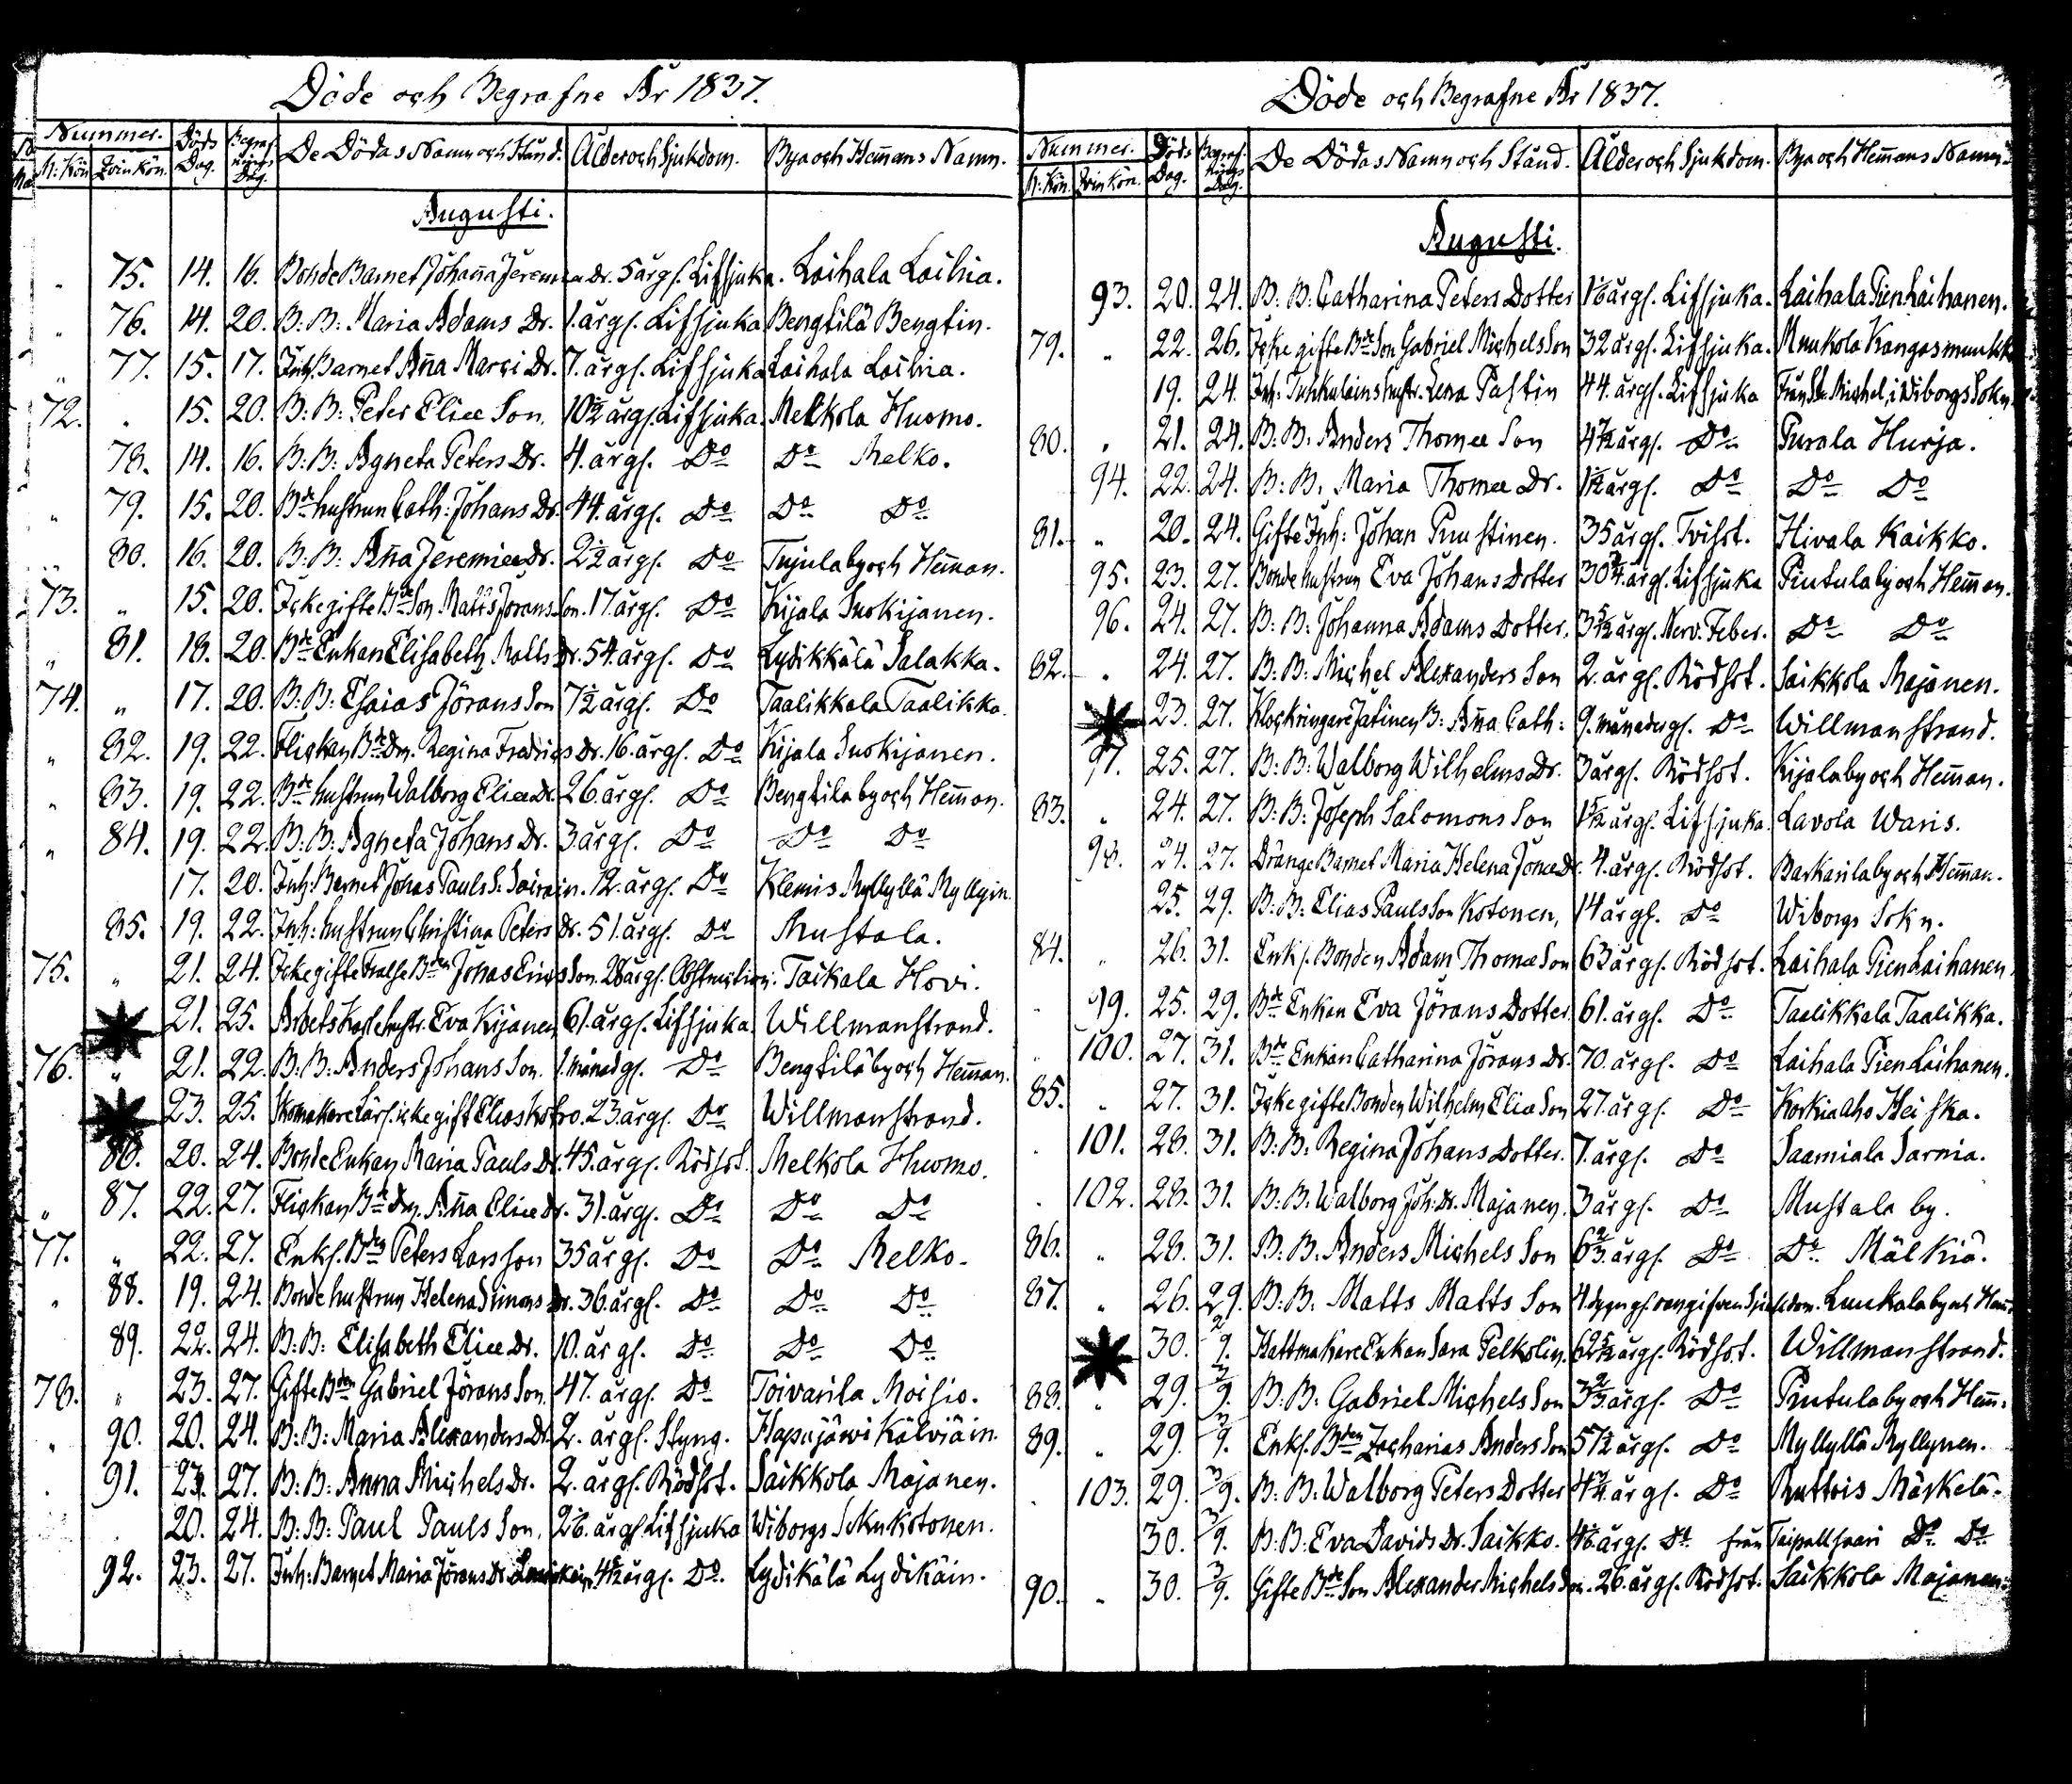 Döde och Begrafne År 1837.
Nummer. Döds Dag. Begrafnings Dag. De Dödas Namn och Stånd. Ålder och Sjukdom. Bya och Hem̄ans Namn.
M: Kön. Qvin Kön.
Augusti.
" 75. 14. 16. Bonde Barnet Johan̄a Jeremiæ Dr. 5 årgl. Lifsjuka. Laihala Laihia.
" 76. 14. 20. B: B: Maria Adams Dr. 1. årgl. Lifsjuka Bengtilä Bengtin.
" 77. 15. 17. Inh. Barnet An̄a Marci Dr. 7. årgl. Lifsjuka Laihala Laihia.
72. " 15. 20. B: B: Peter Eliæ Son. 10½ årgl. Lifsjuka. Melkola Huomo.
78. 14. 16. B: B: Agneta Peters Dr. 4. årgl. Do Do Melko.
" 79. 15. 20. Bde hustrun Cath: Johans Dr. 44. årgl. Do Do Do
" 80. 16. 20. B: B: An̄a Jeremiæ Dr. 2½ årgl. Do Tujula by och Hem̄an.
73. " 15. 20. Icke gifte Bde Son Matts Jörans Son. 17. årgl. Do Kijala Suokijanen.
" 81. 18. 20. Bde Enkan Elisabeth Matts Dr. 54. årgl. Do Lydikkälä Salakka.
74. " 17. 20. B: B: Esaias Jörans Son 7½ årgl. Do Taalikkala Taalikka.
" 82. 19. 22. Flickan Bde Dn. Regina Fredrics Dr. 16. årgl. Do Kijala Suokijanen.
" 83. 19. 22. Bde hustrun Walborg Eliæ Dr. 26. årgl. Do Bengtila by och Hem̄an.
" 84. 19. 22. B: B: Agneta Johans Dr. 3. årgl. Do Do Do
17. 20. Inh: Barnet Johas Pauls S. 12. årgl. Do Klemis Myllyllä Myllyin.
85. 19. 22. Inh: hustrun Christina Peters Dr. 51. årgl. Do Mustala.
75. " 21. 24. Icke gifte Bden Johas Son. 28 årgl. Obstruction: Taikala Hovi.
21. 25. Arbets Karls hustr. Eva Kijanen 61. årgl. Lifsjuka. Willmanstrand.
76. " 21. 22. B: B: Anders Johans Son. 1. månad gl. Do Bengtilä by och Hem̄an.
23. 25. Skomakare Lärl. icke gift Elias 23. årgl. Do Willmanstrand.
86. 20. 24. Bonde Enkan Maria Pauls Dr. 45. årgl. Rödsot. Melkola Huomo.
" 87. 22. 27. Flickan Bde dn. An̄a Eliæ Dr. 31. årgl. Do Do Do
77. " 22. 27. Enkl. Bden Peters Lars Son 35 årgl. Do Do Melko.
" 88. 19. 24. Bonde hustrun Helena Simons Dr. 36. årgl. Do Do Do
89. 22. 24. B: B: Elisabeth Eliæ Dr. 10. år gl. Do Do Do
78. " 23. 27. Gifte Bden Gabriel Jörans Son. 47. årgl. Do Toivarila Moisio.
" 90. 20. 24. B: B: Maria Alexanders Dr. 2. årgl. Styng. Hapujärvi Kälviäin.
" 91. 23. 27. B: B: Anna Michels Dr. 2. årgl. Rödsot. Saikkola Majanen.
20. 24. B: B: Paul Pauls Son. årgl. Lifsjuka Wiborgs Sokn Kotonen.
92. 23. 27. Inh: Barnet Maria Jörans Dr. årgl. Do. Lydikälä Lydikäin.
Döde och Begrafne År 1837.
Nummer. Döds Dag. Begrafnings Dag. De Dödas Namn och Stånd. Ålder och Sjukdom. Bya och Hem̄ans Namn
M: Kön. Qvin Kön.
Augusti.
93. 20. 24. B: B: Catharina Peters Dotter årgl. Lifsjuka. Laihala Pien Laihanen.
79. " 22. 26. Icke gifte Bde Son Gabriel Michels Son 32 årgl. Lifsjuka. Muukola Kangasmuukk
19. 24. Inh: hustr. Lena Pastin 44. årgl. Lifsjuka Från St. Michel, i Wiborgs Sokn.
80. " 21. 24. B: B: Anders Thomæ Son årgl. Do Purala Hurja.
94. 22. 24. B: B: Maria Thomæ Dr. 1½ årgl. Do Do Do
81. " 20. 24. Gifte Inh: Johan Puustinen. 35 årgl. Tvisot. Hivala Kaikko.
95. 23. 27. Bonde hustrun Eva Johans Dotter 30¾ årgl. Lifsjuka Pintula by och Hem̄an.
96. 24. 27. B: B: Johanna Adams Dotter. 3 5/12 årgl. Nerv. Feber. Do Do
82. " 24. 27. B: B: Michel Alexanders Son 2. årgl. Rödsot. Saikkola Majanen.
23. 27. Klockringare Jatinen B: An̄a Cath: 9. månader gl. Do Willmanstrand.
97. 25. 27. B: B: Walborg Wilhelms Dr. 3 årgl. Rödsot. Kijala by och Hem̄an.
83. " 24. 27. B: B: Joseph Salomons Son 1 5/12 årgl. Lifsjuka. Lavola Waris.
98. 24. 27. Dränge Barnet Maria Helena Jonæ Dr. 4. årgl. Rödsot. Barkarila by och Hem̄an.
25. 29. B: B: Elias Pauls Son Kotonen, 14 årgl. Do Wiborgs Sokn.
84. " 26. 31. Enkl. Bonden Adam Thomæ Son 63 årgl. Rödsot. Laihala Pien Laihanen.
" 99. 25. 29. Bde Enkan Eva Jörans Dotter 61. årgl. Do Taalikkala Taalikka.
" 100. 27. 31. Bde Enkan Catharina Jörans Dr. 70. årgl. Do Laihala Pien Laihanen.
85. " 27. 31. Icke gifte Bonden Wilhelm Eliæ Son 27. årgl. Do Koskiaho Heiska.
" 101. 28. 31. B: B: Regina Johans Dotter. 7. årgl. Do Saamiala Sarnia.
" 102. 28. 31. B: B: Walborg Joh: Dr. Majanen. 3 årgl. Do Mustala by.
86. " 28. 31. B: B: Anders Michels Son 6⅔ årgl. Do Do Mälkiä.
87. " 26. 29. B: B: Matts Matts Son 4. dygn gl. oangifven Sjukdom. Luukala by och Hem̄
30. 2/9. Hattmakare Enkan Sara Pelkolin. 62 5/12 årgl. Rödsot. Willmanstrand.
88. " 29. 3/9. B: B: Gabriel Michels Son 3⅔ årgl. Do Pintula by och Hem̄.
89. " 29. 3/9. Enkl. Bden Zacharias Anders Son 57½ årgl. Do Myllyllä Myllynen.
" 103. 29. 3/9. B: B: Walborg Peters Dotter årgl. Do Ruttois Märkelä.
30. 3/9. B: B: Eva Davids Dr. Saikko. årgl. Do från Taipallsaari Do Do
90. " 30. 3/9. Gifte Bde Son Alexander Michels Son. 26. årgl. Rödsot. Saikkola Majanen.